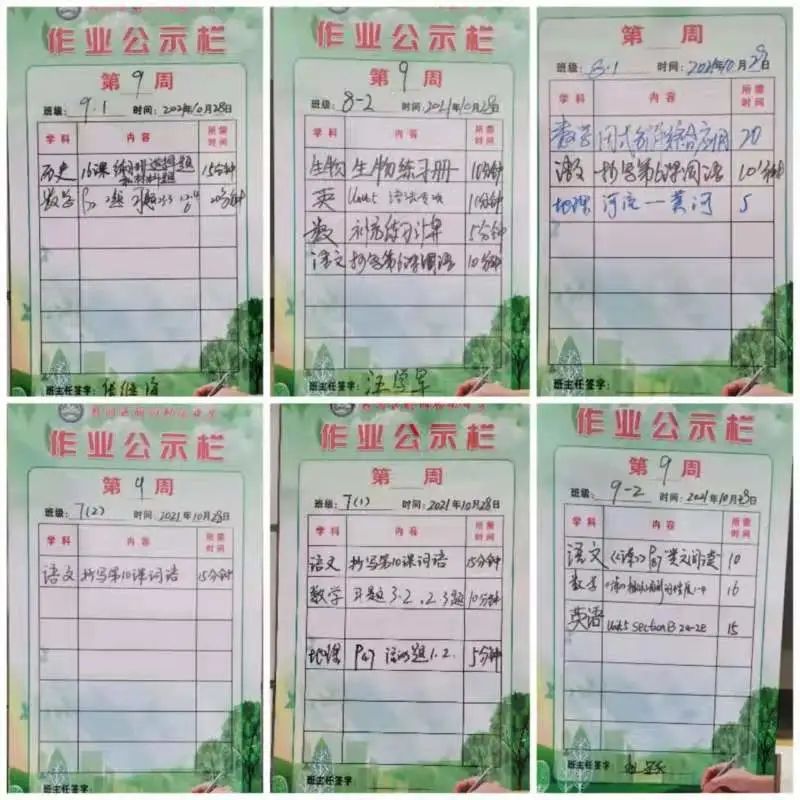 作业公示栏
第 9 周
班级: 9.1 时间: 2021年10月28日
学科 内容 所需时间
历史 16课 练习册选择题 15分钟
和材料题
数学 20分钟
班主任签字:
作业公示栏
第 9 周
班级: 8-2 时间: 2021年10月28日
学科 内容 所需时间
生物 生物练习册 10分钟
英 Unit5 语法专项 10分钟
数 补充练习计算 5分钟
语文 抄写第6课词语 10分钟
班主任签字:
第 周
班级: 8.1 时间: 2021年10月28日
学科 内容 所需时间
数学 20
语文 抄写第16课词语 10分钟
地理 河流一黄河 5
班主任签字:
作业公示栏
第 9 周
班级: 7(2) 时间: 2021年10月28日
学科 内容 所需时间
语文 抄写第10课词语 15分钟
班主任签字:
作业公示栏
第 9 周
班级: 7(1) 时间: 2021年10月28日
学科 内容 所需时间
语文 抄写第10课词语 15分钟
数学 习题3.2 2.3题 10分钟
地理 P47 1.2. 5分钟
班主任签字:
作业公示栏
第 9 周
班级: 9-2 时间: 2021年10月28日
学科 内容 所需时间
语文 类文阅读 10
数学 16
英语 Unit5 Section B 2a-2e 15
班主任签字: